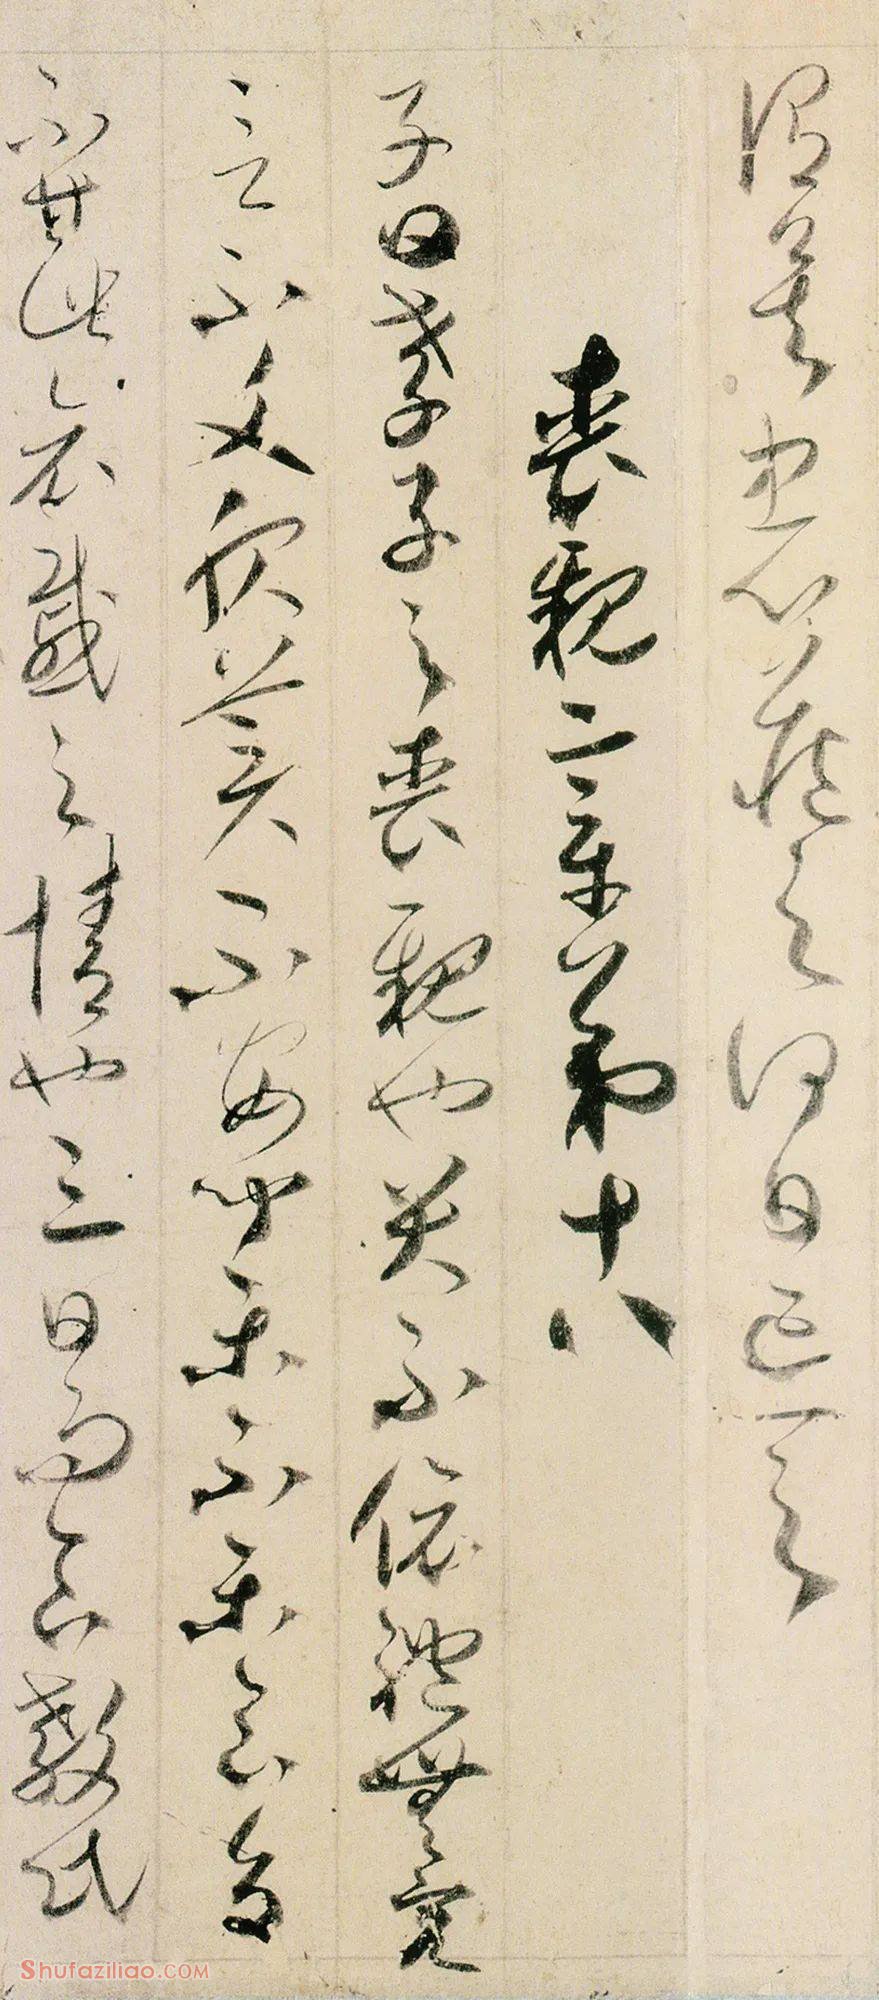 謂矣中心藏之何日忘之
喪親章第十八
子曰孝子之喪親也哭不偯禮無容
言不文服美不安聞樂不樂食旨
不甘此哀慼之情也三日而食教民
Shufaziliao.COM